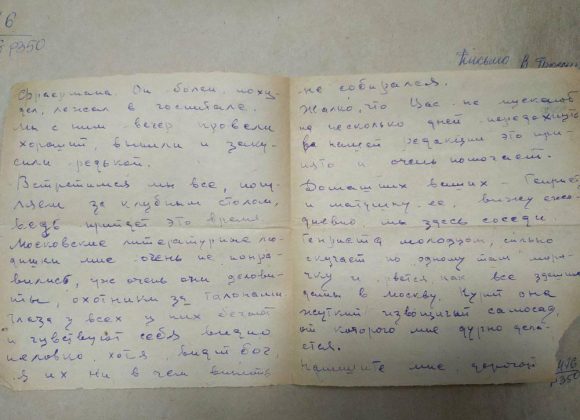 16
р350
Письмо В
Фраермана. Он болел, поху-
дел, лежал в госпитале.
Мы с ним вечер провели
хороший, выпили и заку-
сили редькой.
Встретимся мы все, погу-
ляем за клубным столом,
ведь придет это время.
Московские литературные лю-
дишки мне очень не понра-
вились, уже очень они делови-
ты, охотники за талонами.
Глаза у всех у них бегают
и чувствуют себя видно
неловко, хотя видит бог,
я их ни в чем
не собирался.
Жалко, что Вас не пускают
на несколько дней
в нашей редакции это при-
нято и очень помогает.
Домашних ваших –
и матушку ее, вижу еже-
дневно мы здесь соседи.
Генриетта молодцом, сильно
скучает по одному там моря-
чку и рвется как все здешние
дамы в Москву. Курит она
жуткий извозчичий самосад
от которого мне дурно дела-
ется.
Напишите мне, дорогой
416
р350